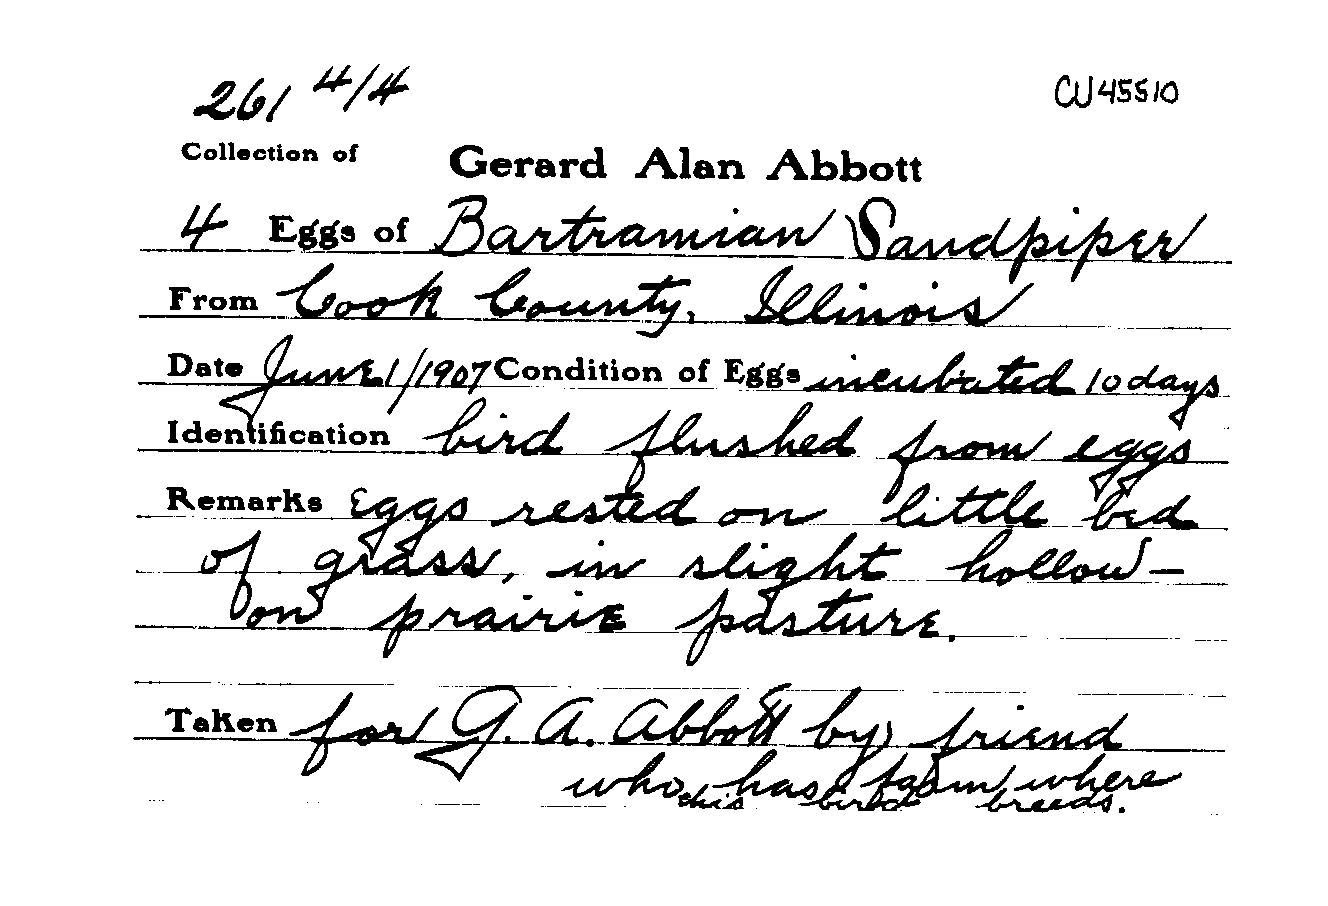 261 4/4 CU45510
Collection of Gerard Alan Abbott
4 Eggs of Bartramian Sandpiper
From Cook County, Illinois
Date June 1/1907 Condition of Eggs incubated 10 days
Identification bird flushed from eggs
Remarks Eggs rested on little bed
of grass, in slight hollow-
on prairie pasture.
Taken for G. A. Abbott by friend
who has farm where
this bird breeds.